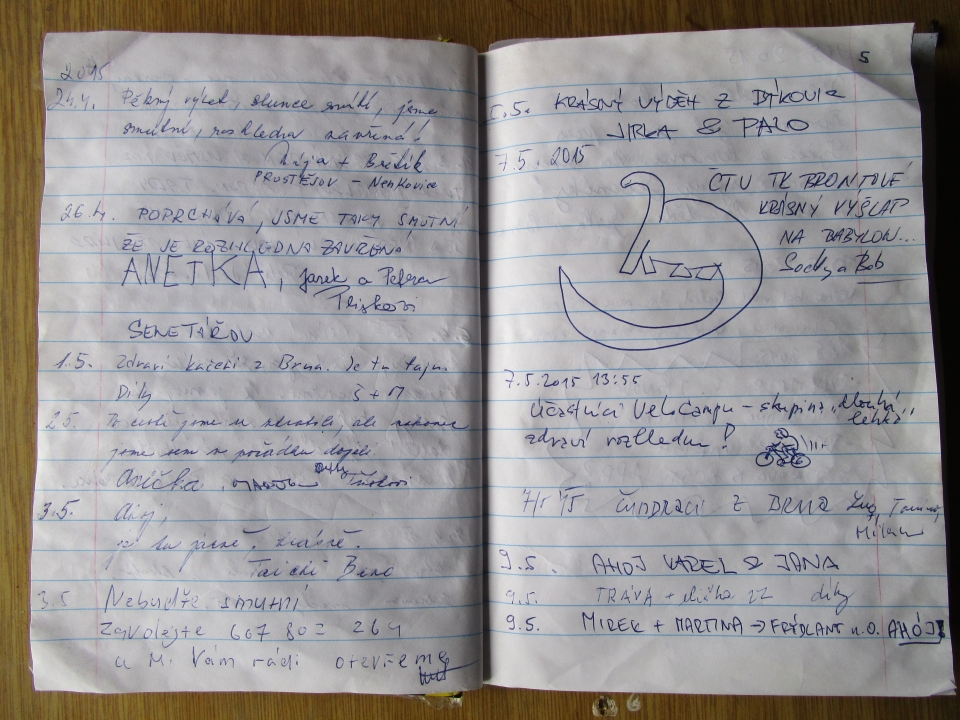 2015
24.4. Pěkný výlet, slunce svítí, jsme
smutní, rozhledna zavřená!
+ Bráťa
PROSTĚJOV – Nenkovice
26.4. POPRCHÁVÁ, JSME TAKY SMUTNÍ
ŽE JE ROZHLEDNA ZAVŘENÁ
ANETKA, Jarek a Petra
SENETÁŘOV
1.5. Zdraví kačeři z Brna. Je tu fajn.
Díky Š + M
2.5. Po cestě jsme se ztratili, ale nakonec
jsme sem v pořádku dojeli.
Anička,
3.5. Ahoj,
je tu krásně.
Taichi Brno
3.5 Nebuďte smutní
Zavolejte 607 802 264
a my Vám rádi otevřeme
5
5.5. KRÁSNÝ VÝBĚH Z BÝKOVIC
JIRKA & PALO
7.5. 2015
ČTU TK BRONTOVÉ
KRÁSNÝ VÝŠLAP
NA BABYLON...
a Bob
7.5.2015 13:55
Účastníci VeloCampu – skupina „dlouhá
lehká"
zdraví rozhlednu!
7/5 15 ČUNDRACI Z BRNA
Milan
9.5. AHOJ KAREL & JANA
9.5. TRÁVA + díky
9.5. MIREK + MARTINA → FRÝDLANT n.O. AHÓJ!